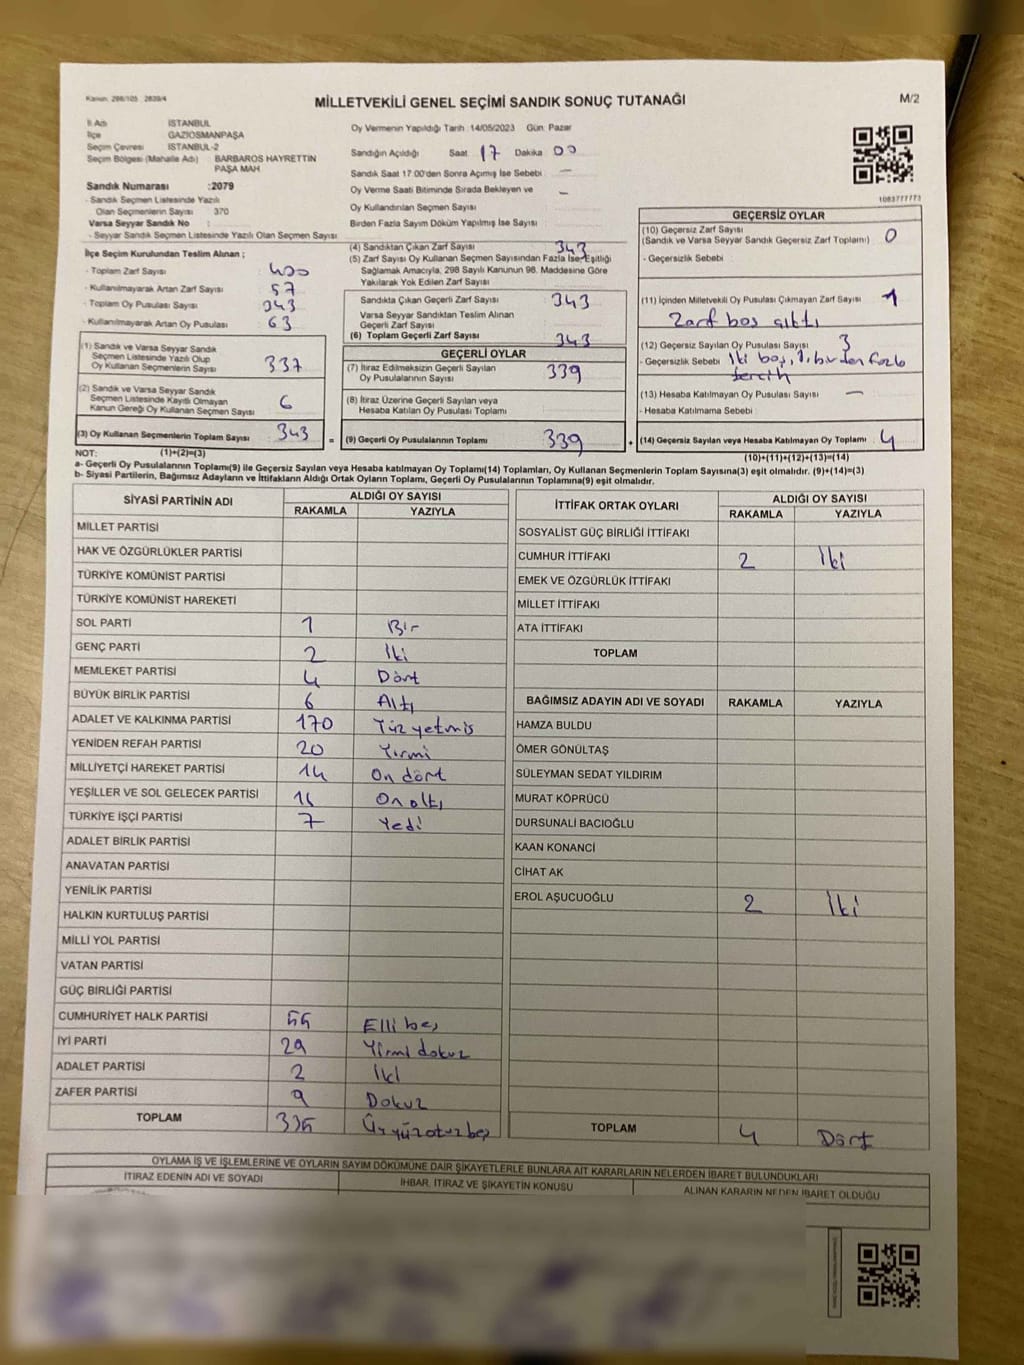 Kanun: 298/105 2839/4
MİLLETVEKİLİ GENEL SEÇİMİ SANDIK SONUÇ TUTANAĞI
M/2
İl Adı İSTANBUL
İlçe GAZİOSMANPAŞA
Seçim Çevresi İSTANBUL-2
Seçim Bölgesi (Mahalle Adı) BARBAROS HAYRETTIN PAŞA MAH
Sandık Numarası :2079
- Sandık Seçmen Listesinde Yazılı
Olan Seçmenlerin Sayısı 370
Varsa Seyyar Sandık No :
- Seyyar Sandık Seçmen Listesinde Yazılı Olan Seçmen Sayısı
Oy Vermenin Yapıldığı Tarih :14/05/2023 Gün: Pazar
Sandığın Açıldığı Saat 17 Dakika 00
Sandık Saat 17:00'den Sonra Açımış İse Sebebi —
Oy Verme Saati Bitiminde Sırada Bekleyen ve –
Oy Kullandırılan Seçmen Sayısı
Birden Fazla Sayım Döküm Yapılmış İse Sayısı
1083777773
İlçe Seçim Kurulundan Teslim Alınan ;
- Toplam Zarf Sayısı : 400
- Kullanılmayarak Artan Zarf Sayısı : 57
- Toplam Oy Pusulası Sayısı : 343
- Kullanılmayarak Artan Oy Pusulası : 63
(1) Sandık ve Varsa Seyyar Sandık
Seçmen Listesinde Yazılı Olup
Oy Kullanan Seçmenlerin Sayısı 337
(2) Sandık ve Varsa Seyyar Sandık
Seçmen Listesinde Kayıtlı Olmayan
Kanun Gereği Oy Kullanan Seçmen Sayısı 6
(3) Oy Kullanan Seçmenlerin Toplam Sayısı 343 =
(4) Sandıktan Çıkan Zarf Sayısı 343
(5) Zarf Sayısı Oy Kullanan Seçmen Sayısından Fazla İse, Eşitliği
Sağlamak Amacıyla, 298 Sayılı Kanunun 98. Maddesine Göre
Yakılarak Yok Edilen Zarf Sayısı
Sandıkta Çıkan Geçerli Zarf Sayısı 343
Varsa Seyyar Sandıktan Teslim Alınan
Geçerli Zarf Sayısı
(6) Toplam Geçerli Zarf Sayısı 343
GEÇERLİ OYLAR
(7) İtiraz Edilmeksizin Geçerli Sayılan
Oy Pusulalarının Sayısı 339
(8) İtiraz Üzerine Geçerli Sayılan veya
Hesaba Katılan Oy Pusulası Toplamı
(9) Geçerli Oy Pusulalarının Toplamı 339 +
GEÇERSİZ OYLAR
(10) Geçersiz Zarf Sayısı
(Sandık ve Varsa Seyyar Sandık Geçersiz Zarf Toplamı) 0
- Geçersizlik Sebebi :
(11) İçinden Milletvekili Oy Pusulası Çıkmayan Zarf Sayısı 1
Zarf boş çıktı
(12) Geçersiz Sayılan Oy Pusulası Sayısı 3
- Geçersizlik Sebebi İki boş, 1 birden fazla
tercih
(13) Hesaba Katılmayan Oy Pusulası Sayısı —
- Hesaba Katılmama Sebebi
(14) Geçersiz Sayılan veya Hesaba Katılmayan Oy Toplamı 4
NOT: (1)+(2)=(3)
(10)+(11)+(12)+(13)=(14)
a- Geçerli Oy Pusulalarının Toplamı(9) ile Geçersiz Sayılan veya Hesaba katılmayan Oy Toplamı(14) Toplamları, Oy Kullanan Seçmenlerin Toplam Sayısına(3) eşit olmalıdır. (9)+(14)=(3)
b- Siyasi Partilerin, Bağımsız Adayların ve İttifakların Aldığı Ortak Oyların Toplamı, Geçerli Oy Pusulalarının Toplamına(9) eşit olmalıdır.
SİYASİ PARTİNİN ADI ALDIĞI OY SAYISI
RAKAMLA YAZIYLA
MİLLET PARTİSİ
HAK VE ÖZGÜRLÜKLER PARTİSİ
TÜRKİYE KOMÜNİST PARTİSİ
TÜRKİYE KOMÜNİST HAREKETİ
SOL PARTİ 1 Bir
GENÇ PARTİ 2 İki
MEMLEKET PARTİSİ 4 Dört
BÜYÜK BİRLİK PARTİSİ 6 Altı
ADALET VE KALKINMA PARTİSİ 170 Yüz yetmiş
YENİDEN REFAH PARTİSİ 20 Yirmi
MİLLİYETÇİ HAREKET PARTİSİ 14 On dört
YEŞİLLER VE SOL GELECEK PARTİSİ 16 On altı
TÜRKİYE İŞÇİ PARTİSİ 7 Yedi
ADALET BİRLİK PARTİSİ
ANAVATAN PARTİSİ
YENİLİK PARTİSİ
HALKIN KURTULUŞ PARTİSİ
MİLLİ YOL PARTİSİ
VATAN PARTİSİ
GÜÇ BİRLİĞİ PARTİSİ
CUMHURİYET HALK PARTİSİ 55 Elli beş
İYİ PARTİ 29 Yirmi dokuz
ADALET PARTİSİ 2 İki
ZAFER PARTİSİ 9 Dokuz
TOPLAM 335 Üç yüz otuz beş
İTTİFAK ORTAK OYLARI ALDIĞI OY SAYISI
RAKAMLA YAZIYLA
SOSYALİST GÜÇ BİRLİĞİ İTTİFAKI
CUMHUR İTTİFAKI 2 İki
EMEK VE ÖZGÜRLÜK İTTİFAKI
MİLLET İTTİFAKI
ATA İTTİFAKI
TOPLAM
BAĞIMSIZ ADAYIN ADI VE SOYADI RAKAMLA YAZIYLA
HAMZA BULDU
ÖMER GÖNÜLTAŞ
SÜLEYMAN SEDAT YILDIRIM
MURAT KÖPRÜCÜ
DURSUNALİ BACIOĞLU
KAAN KONANCİ
CİHAT AK
EROL AŞUCUOĞLU 2 İki
TOPLAM 4 Dört
OYLAMA İŞ VE İŞLEMLERİNE VE OYLARIN SAYIM DÖKÜMÜNE DAİR ŞİKAYETLERLE BUNLARA AİT KARARLARIN NELERDEN İBARET BULUNDUKLARI
İTİRAZ EDENİN ADI VE SOYADI
İHBAR, İTİRAZ VE ŞİKAYETİN KONUSU
ALINAN KARARIN NEDEN İBARET OLDUĞU